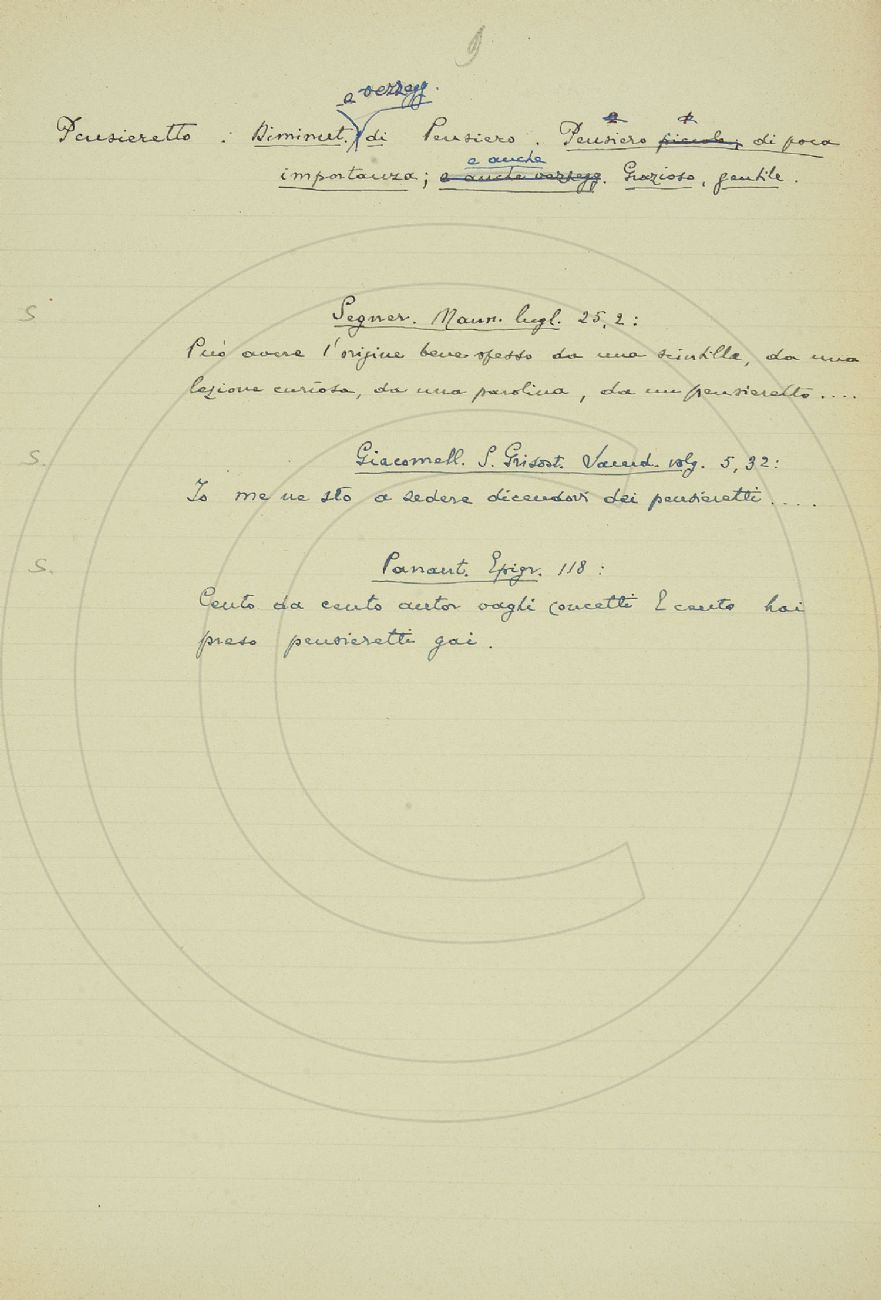 9
e vezzegg.
Pensieretto. Diminut. di Pensiero. Pensiero piccolo, di poca
e anche
importanza; e anche vezzegg. Grazioso, gentile.
S
Segner. Mann. lugl. 25, 2:
Può avere l'origine bene spesso da una scintilla, da una
lezione curiosa, da una parolina, da un pensieretto....
S.
Giacomell. S. Grisost. volg. 5, 32:
Io me ne sto a sedere dicendovi dei pensieretti.....
S.
Panant. Epigr. 118:
Cento da cento autor vaghi concetti E cento hai
preso pensieretti gai.